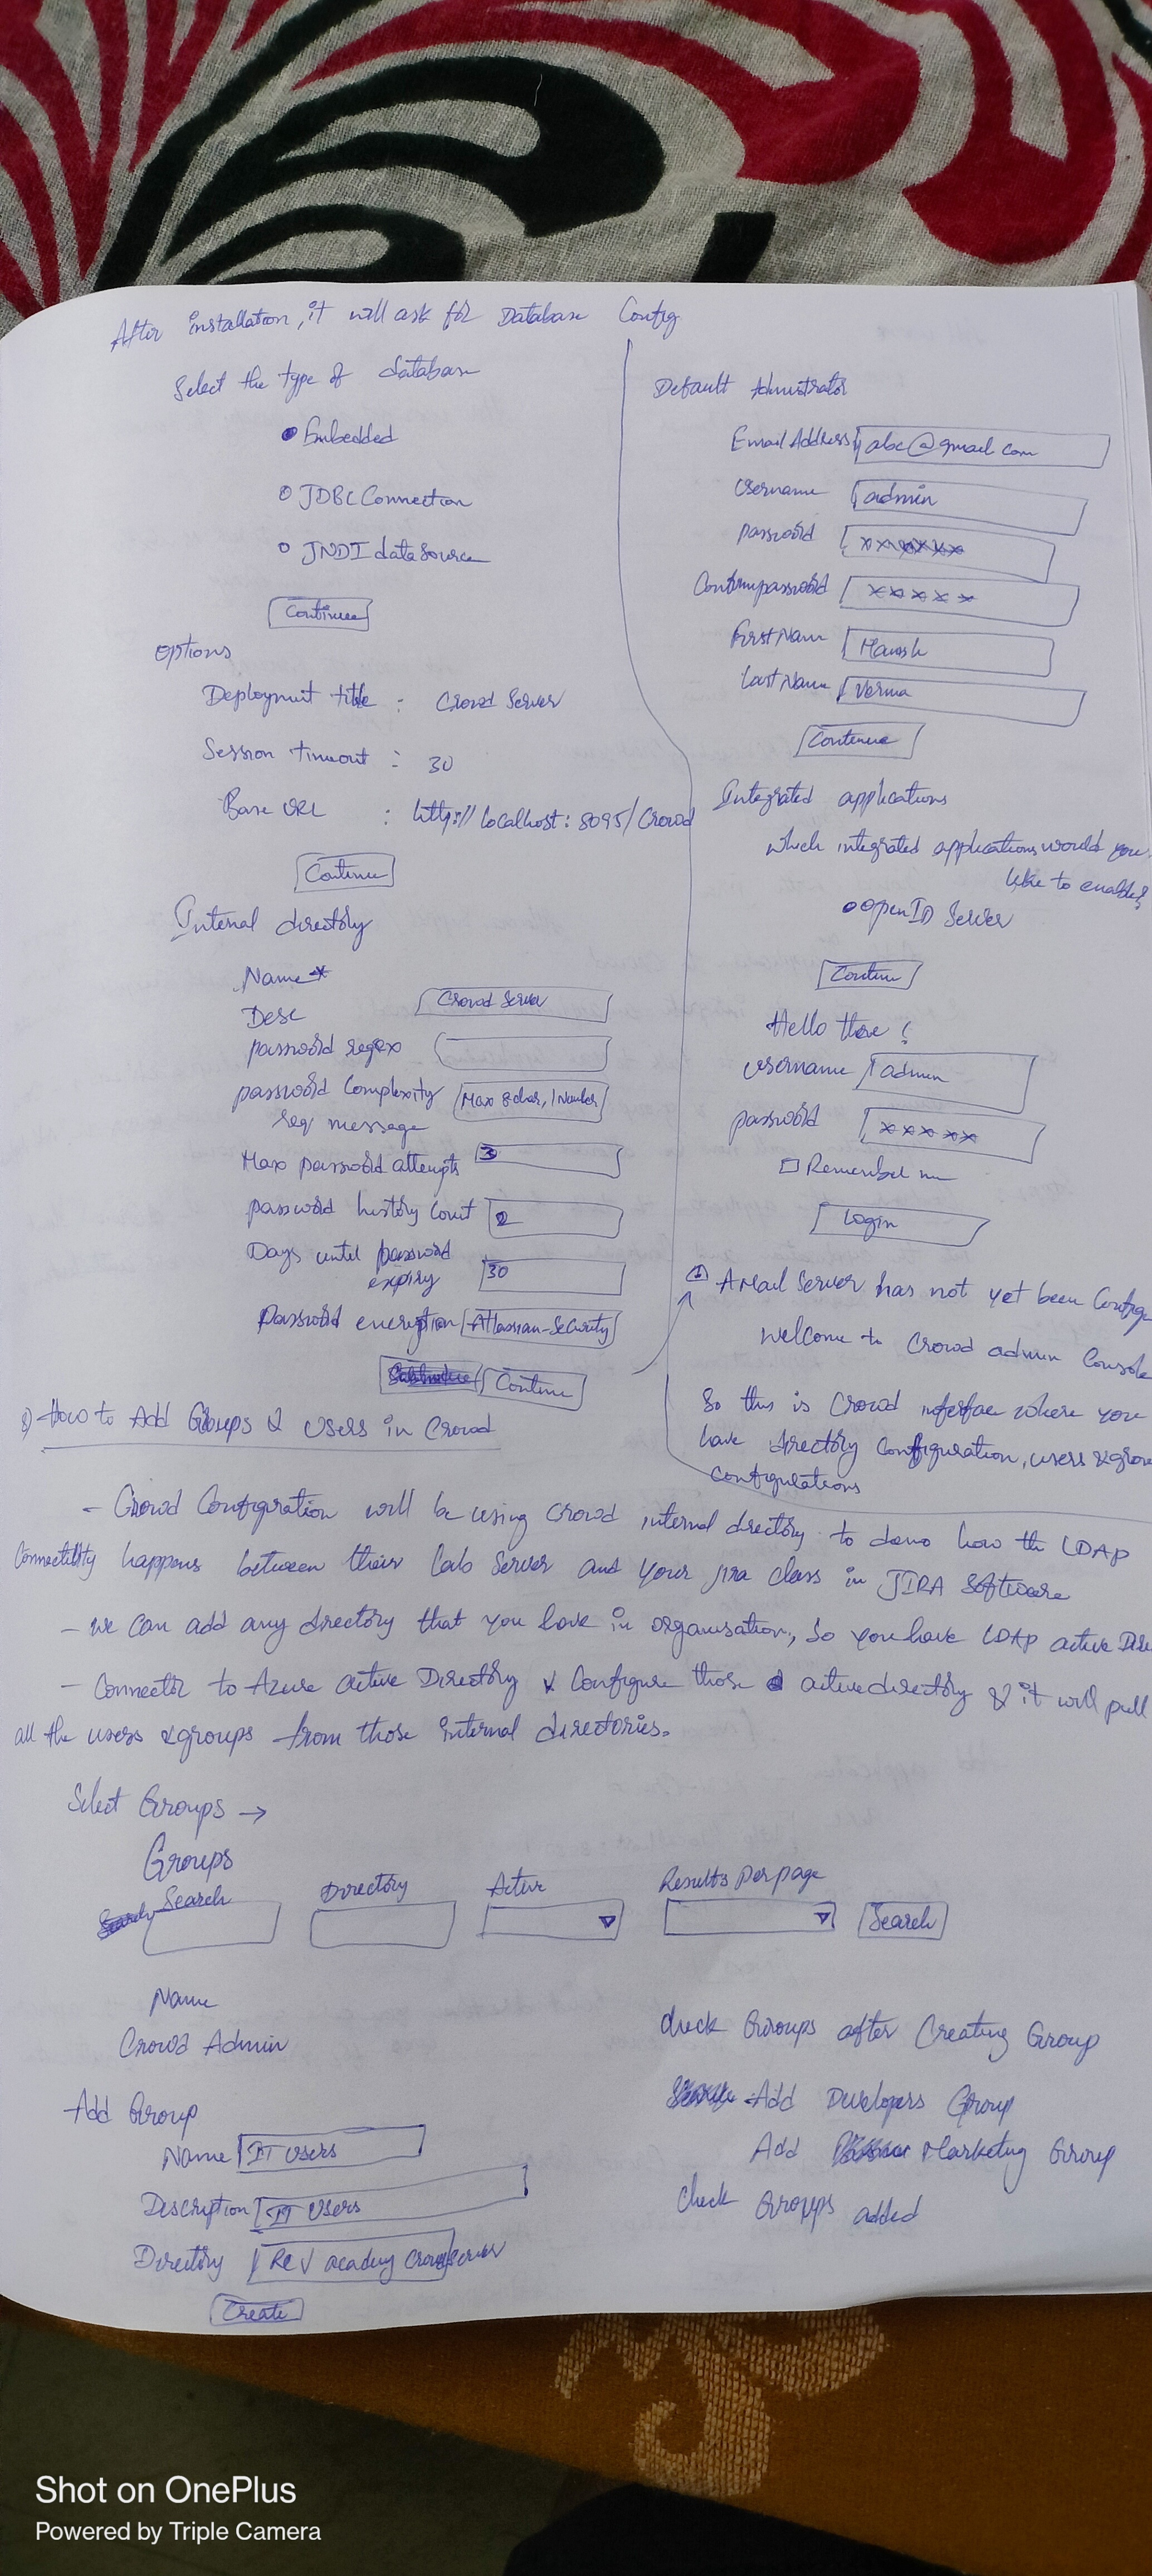 After installation, it will ask for Database Config
Select the type of database
Embedded
JDBC Connection
JNDI data source
Continue
Options
Deployment title : Crowd Server
Session timeout : 30
Base URL : http://localhost:8095/Crowd
Continue
Internal directory
Name*
Desc Crowd Server
password regex
password complexity Max 8 char, 1 Number
req message
Max password attempts 3
password history count 2
Days until password
expiry 30
Password encryption Atlassian-Security
Continue
Default Admistrator
Email Address abc@gmail.com
Username admin
password xxxxxx
Confirm password xxxxx
First Name
Last Name Verma
Continue
Integrated applications
which integrated applications would you
like to enable?
OpenID Server
Continue
Hello there!
username admin
password xxxxx
Remember me
Login
A Mail Server has not yet been
Welcome to Crowd admin Console
So this is Crowd interface where you
have directory configuration, users &
configurations
8) How to Add Groups & Users in Crowd
- Crowd Configuration will be using crowd internal directory to demo how the LDAP
Connectivity happens between their lab Server and your jira class in JIRA Software
- we can add any directory that you have in organisation, So you have LDAP active
- Connector to Azure active Directory & Configure those active directory & it will pull
all the users & groups from those internal directories.
Select Groups →
Groups
Search Directory Active Results per page Search
Name
Crowd Admin
Add Group
Name IT Users
Description IT Users
Directory Rev academy Crowd Server
Create
check Groups after Creating Group
Add Developers Group
Add Marketing Group
check Groups added
Shot on OnePlus
Powered by Triple Camera